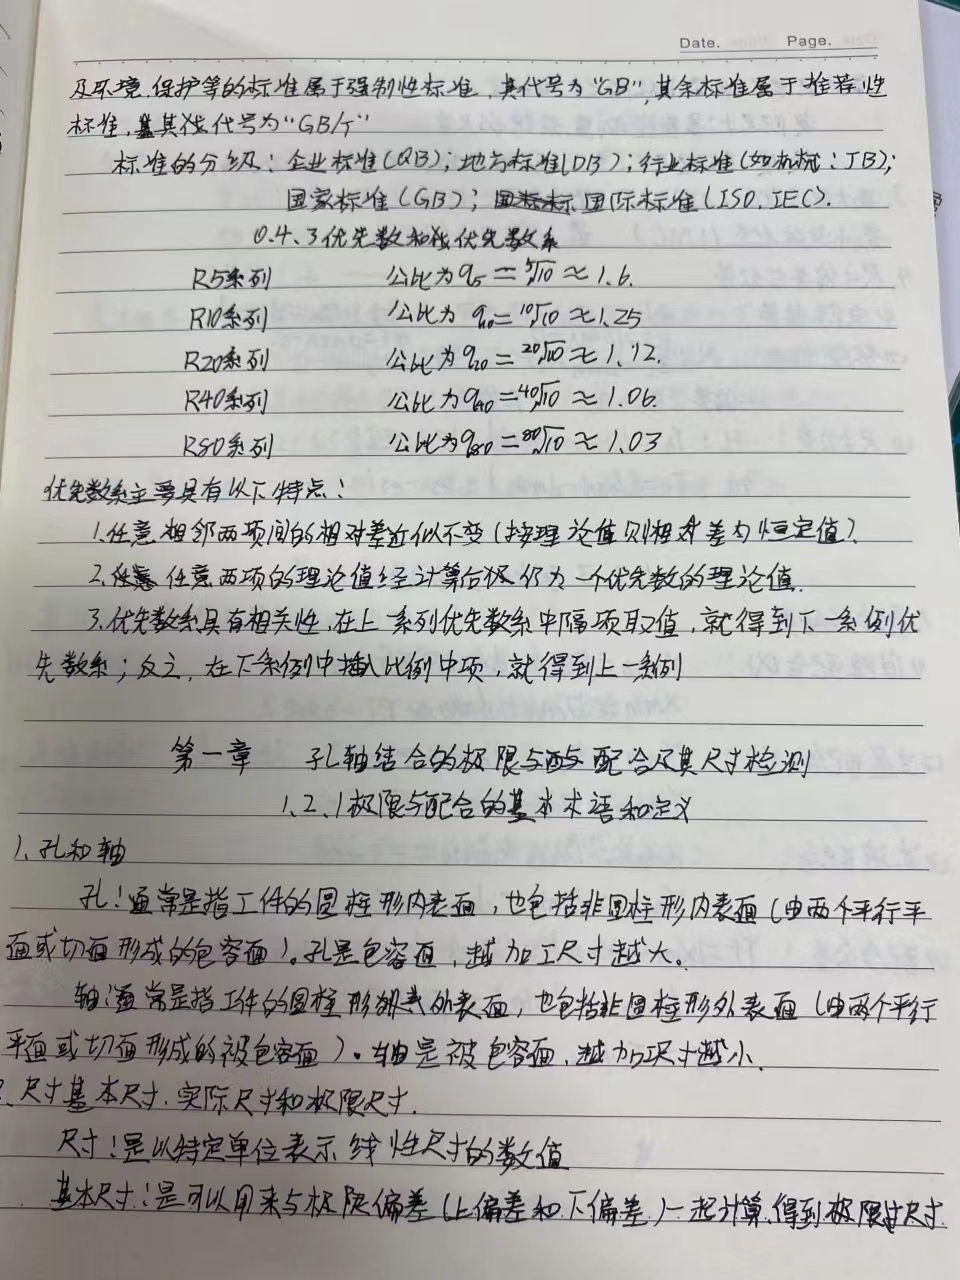 Date. Page.
及环境.保护等的标准属于强制性标准，其代号为"GB",其余标准属于推荐性
标准，其代号为"GB/T"
标准的分级：企业标准(QB)；地方标准(DB)；行业标准(如机械：JB)；
国家标准(GB)；国际标准(ISO.IEC).
0.4.3优先数和优先数系
R5系列 公比为q5=⁵√10≈1.6.
R10系列 公比为q10=¹⁰√10≈1.25
R20系列 公比为q20=²⁰√10≈1.12.
R40系列 公比为q40=⁴⁰√10≈1.06.
R80系列 公比为q80=⁸⁰√10≈1.03
优先数系主要具有以下特点：
1.任意相邻两项间的相对差近似不变(按理论值则相对差为恒定值).
2.任意两项的理论值经计算后仍为一个优先数的理论值.
3.优先数系具有相关性,在上一系列优先数系中隔项取值，就得到下一系例优
先数系；反之，在下一系例中插入比例中项，就得到上一系例
第一章 孔轴结合的极限与配合及其尺寸检测
1.2.1极限与配合的基本术语和定义
1、孔和轴
孔：通常是指工件的圆柱形内表面，也包括非圆柱形内表面(由两个平行平
面或切面形成的包容面)。孔是包容面，越加工尺寸越大。
轴：通常是指工件的圆柱形外表面，也包括非圆柱形外表面(由两个平行
平面或切面形成的被包容面)。轴是被包容面，越加工尺寸越小.
2、尺寸基本尺寸.实际尺寸和极限尺寸.
尺寸：是以特定单位表示线性尺寸的数值
基本尺寸：是可以用来与极限偏差(上偏差和下偏差)一起计算.得到极限尺寸